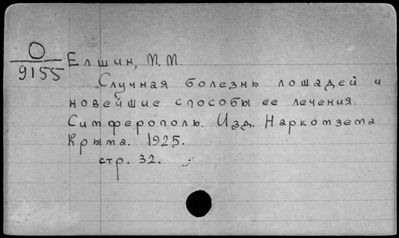 О
9155
Елшин, М. М.
Случная болезнь лошадей и
новейшие способы ее лечения.
Симферополь. Изд. Наркомзема
Крыма. 1925.
стр. 32.